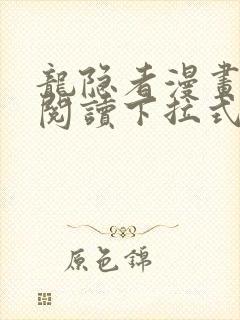 龍隐者漫畫
閱讀下拉式
原色錦